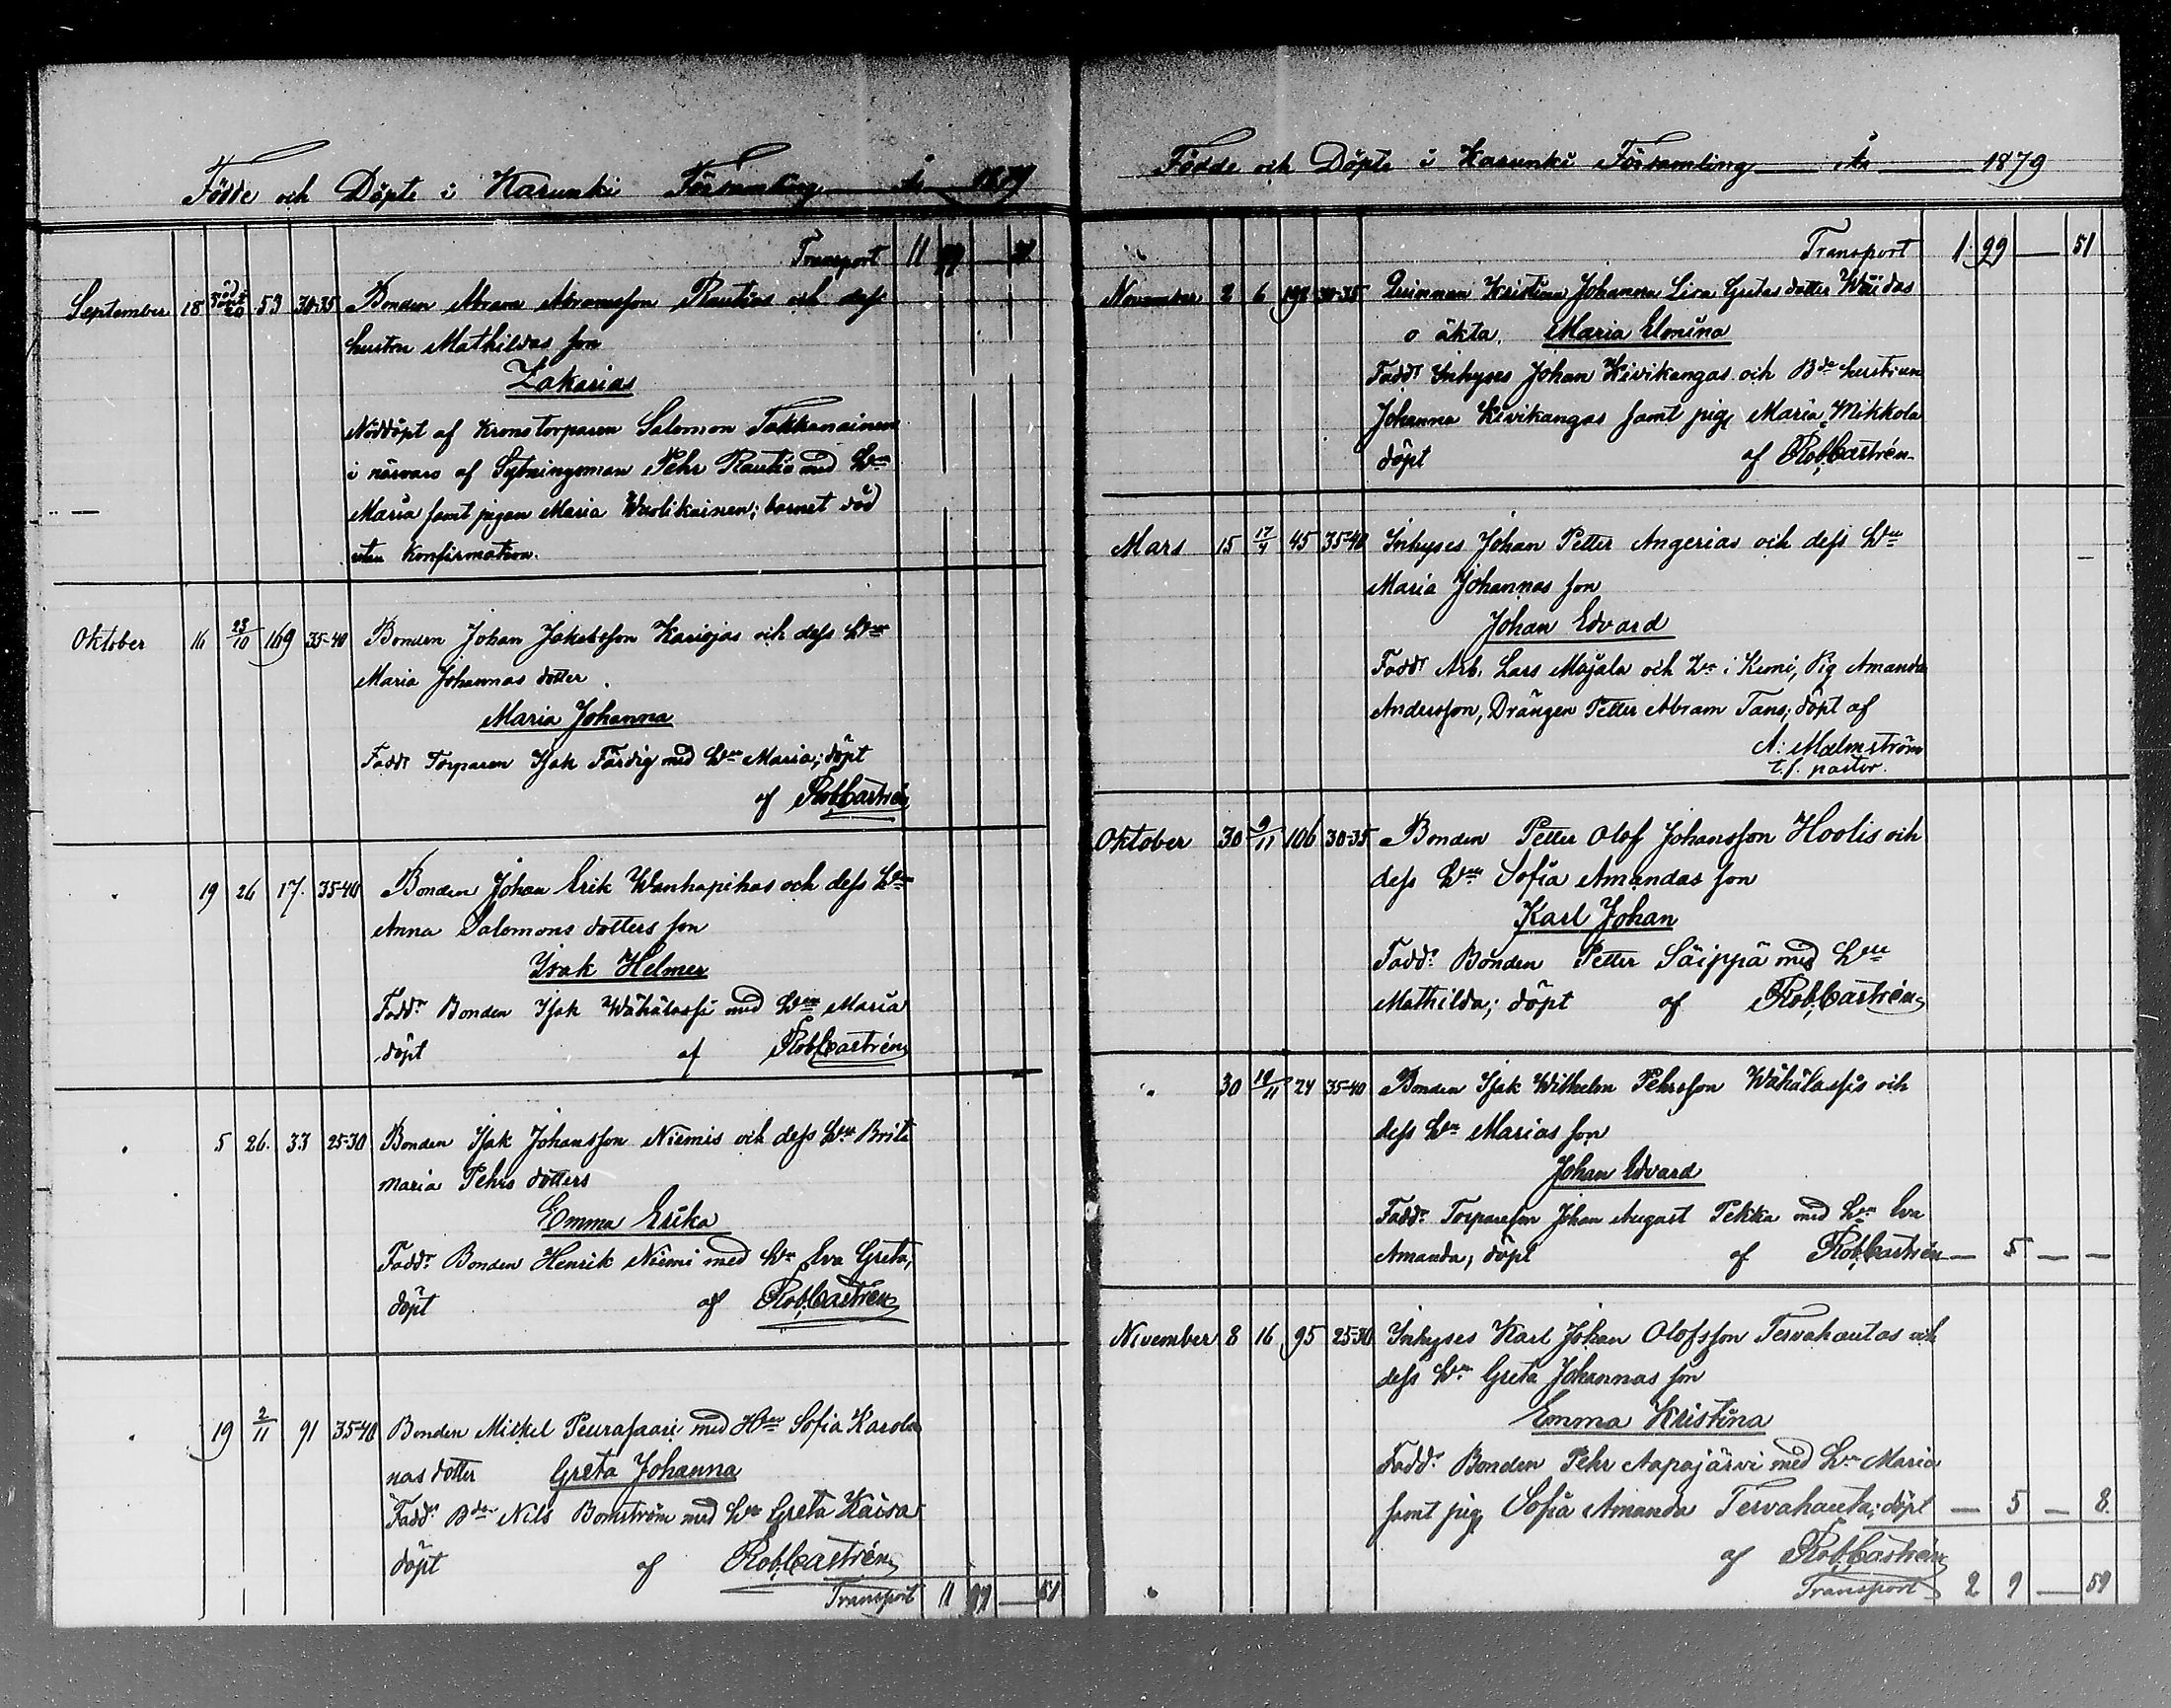 Födde och Döpte i Karunki Församling År 1879
Transport 11 99 — 51
September 18 53 30-35 Bonden Abram Abramsson Rautios och dess
hustru Mathildas son
Zakarias
Nöddöpt af Kronotorparen Salomon Takkanainen
i närvaro af Sytningsman Pehr Rautio med Hu
Maria samt pigan Maria Wuolikainen; barnet död
utan Konfirmation.
Oktober 16 23/10 169 35-40 Bonden Johan Jakobsson Karsojas och dess Hu
Maria Johannas dotter
Maria Johanna
Fadd. Torparen Isak Färdig med Hu Maria; döpt
af Rob. Castrén
" 19 26 17. 35-40 Bonden Johan Erik Wanhapihas och dess Hu
Anna Salomons dotters son
Isak Helmer
Fadd. Bonden Isak Wähälassi med Hu Maria
döpt af Rob. Castrén
" 5 26. 33 25-30 Bonden Isak Johansson Niemis och dess Hu Brita
Maria Pehrs dotters
Emma Erika
Fadd. Bonden Henrik Niemi med Hu Eva Greta;
döpt af Rob. Castrén
" 19 2/11 91 35-40 Bonden Mickel Peurasaari med Hu Sofia Karoli
nas dotter Greta Johanna
Fadd. Bde Nils Bomström med Hu Greta Kaisa
döpt af Rob. Castrén
Transport 11 99 — 51
Födde och Döpte i Karunki Församling År 1879
Transport 1 99 — 51
November 2 6 198 30-35 Qvinnan Kristina Johanna Lisa Gretas dotter Waidas
o äkta. Maria Elmina
Fadd. Inhyses Johan Kivikangas och Bde hustrun
Johanna Kivikangas samt pig. Maria Mikkola
döpt af Rob. Castrén
Mars 15 17/4 45 35-40 Inhyses Johan Petter Angerias och dess Hu
Maria Johannas son
Johan Edvard
Fadd. Arb. Lars Majala och Hu i Kemi, Pig Amanda
Andersson, Drängen Petter Abram Tano; döpt af
A: Malmström
t.f. pastor.
Oktober 30 9/11 106 30-35 Bonden Petter Olof Johansson Hoolis och
dess Hu Sofia Amandas son
Karl Johan
Fadd. Bonden Petter Säippä med Hu
Mathilda; döpt af Rob. Castrén
" 30 10/11 24 35-40 Bonden Isak Wilhelm Pehrsson Wähälassis och
dess Hu Marias son
Johan Edvard
Fadd. Torpareson Johan August Pekka med Hu Eva
Amanda; döpt af Rob. Castrén — 5 — —
November 8 16 95 25-30 Inhyses Karl Johan Olofsson Tervahautas och
dess Hu Greta Johannas son
Emma Kristina
Fadd. Bonden Pehr Aapajärvi med Hu Maria
samt pig. Sofia Amanda Tervahauta; döpt — 5 — 8.
af Rob. Castrén
Transport 2 9 — 59